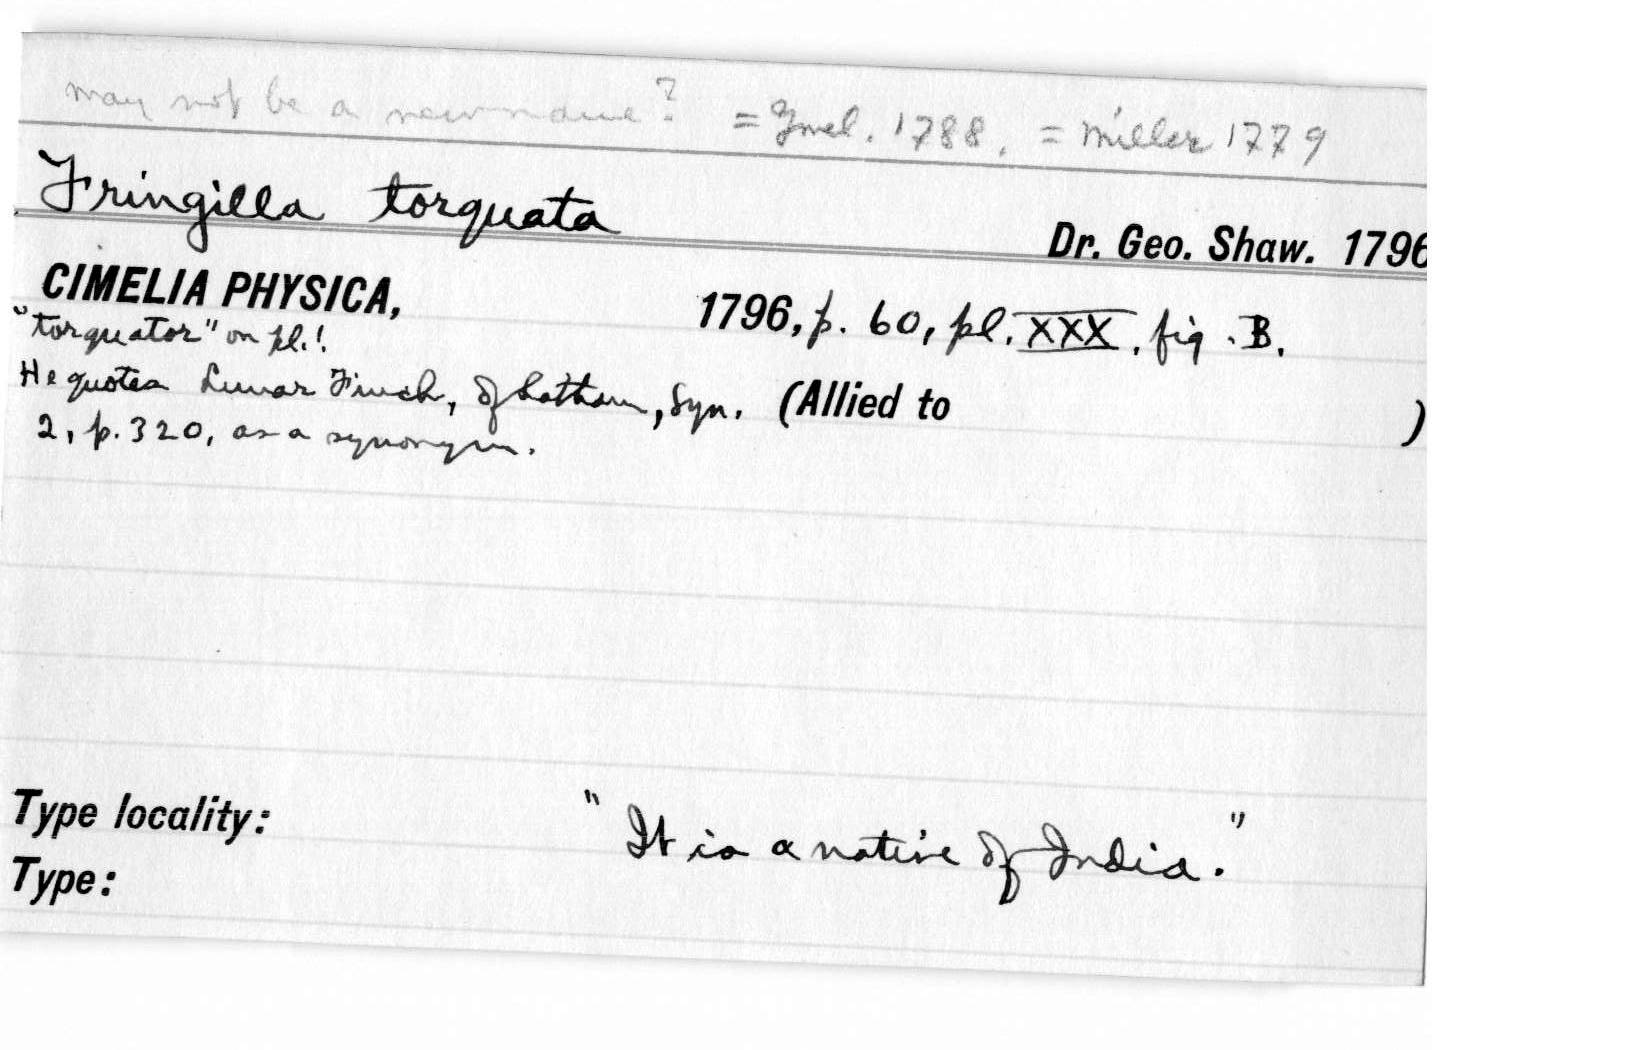 may not be a new name? = Gmel. 1788. = Miller 1779
Fringilla torquata
Dr. Geo. Shaw. 1796
CIMELIA PHYSICA, 1796, p. 60, pl. XXX. fig. B.
"torquator" on pl.!
He quotes Lunar Finch, of Latham, Syn. (Allied to )
2, p. 320, as a synonym.
Type locality: "It is a native of India."
Type: